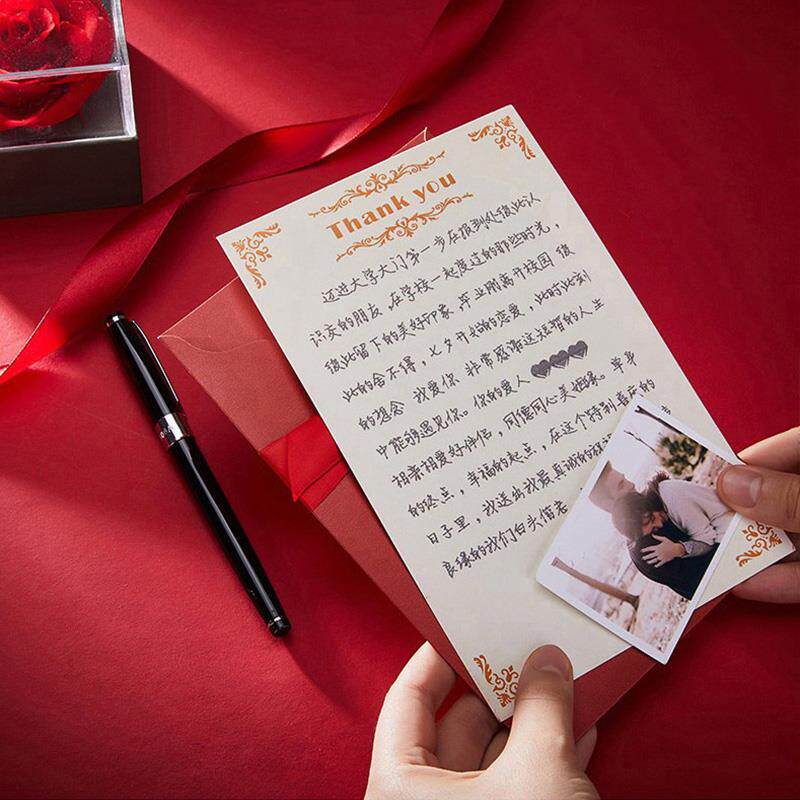 Thank you
迈进大学大门第一步在报到处彼此认
识交的朋友,在学校一起度过的那些时光,
彼此留下的美好印象,毕业刚离开校园 彼
此的舍不得,七夕开始的恋爱,此时此刻
的想念 我爱你 非常感谢这短暂的人生
中能够遇见你。你的爱人
相亲相爱好伴侣,同德同心美姻缘。单身
的终点,幸福的起点,在这个特别喜庆的
日子里,我送出我最真诚的祝
良缘的我们白头偕老